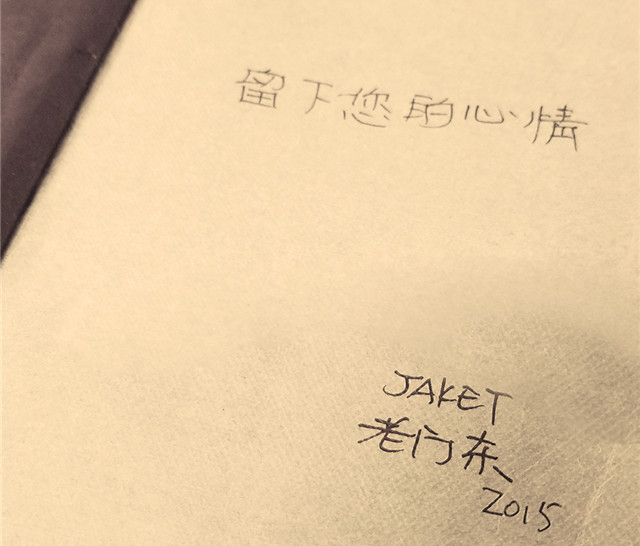 留下您的心情
JAKET
老门东
2015